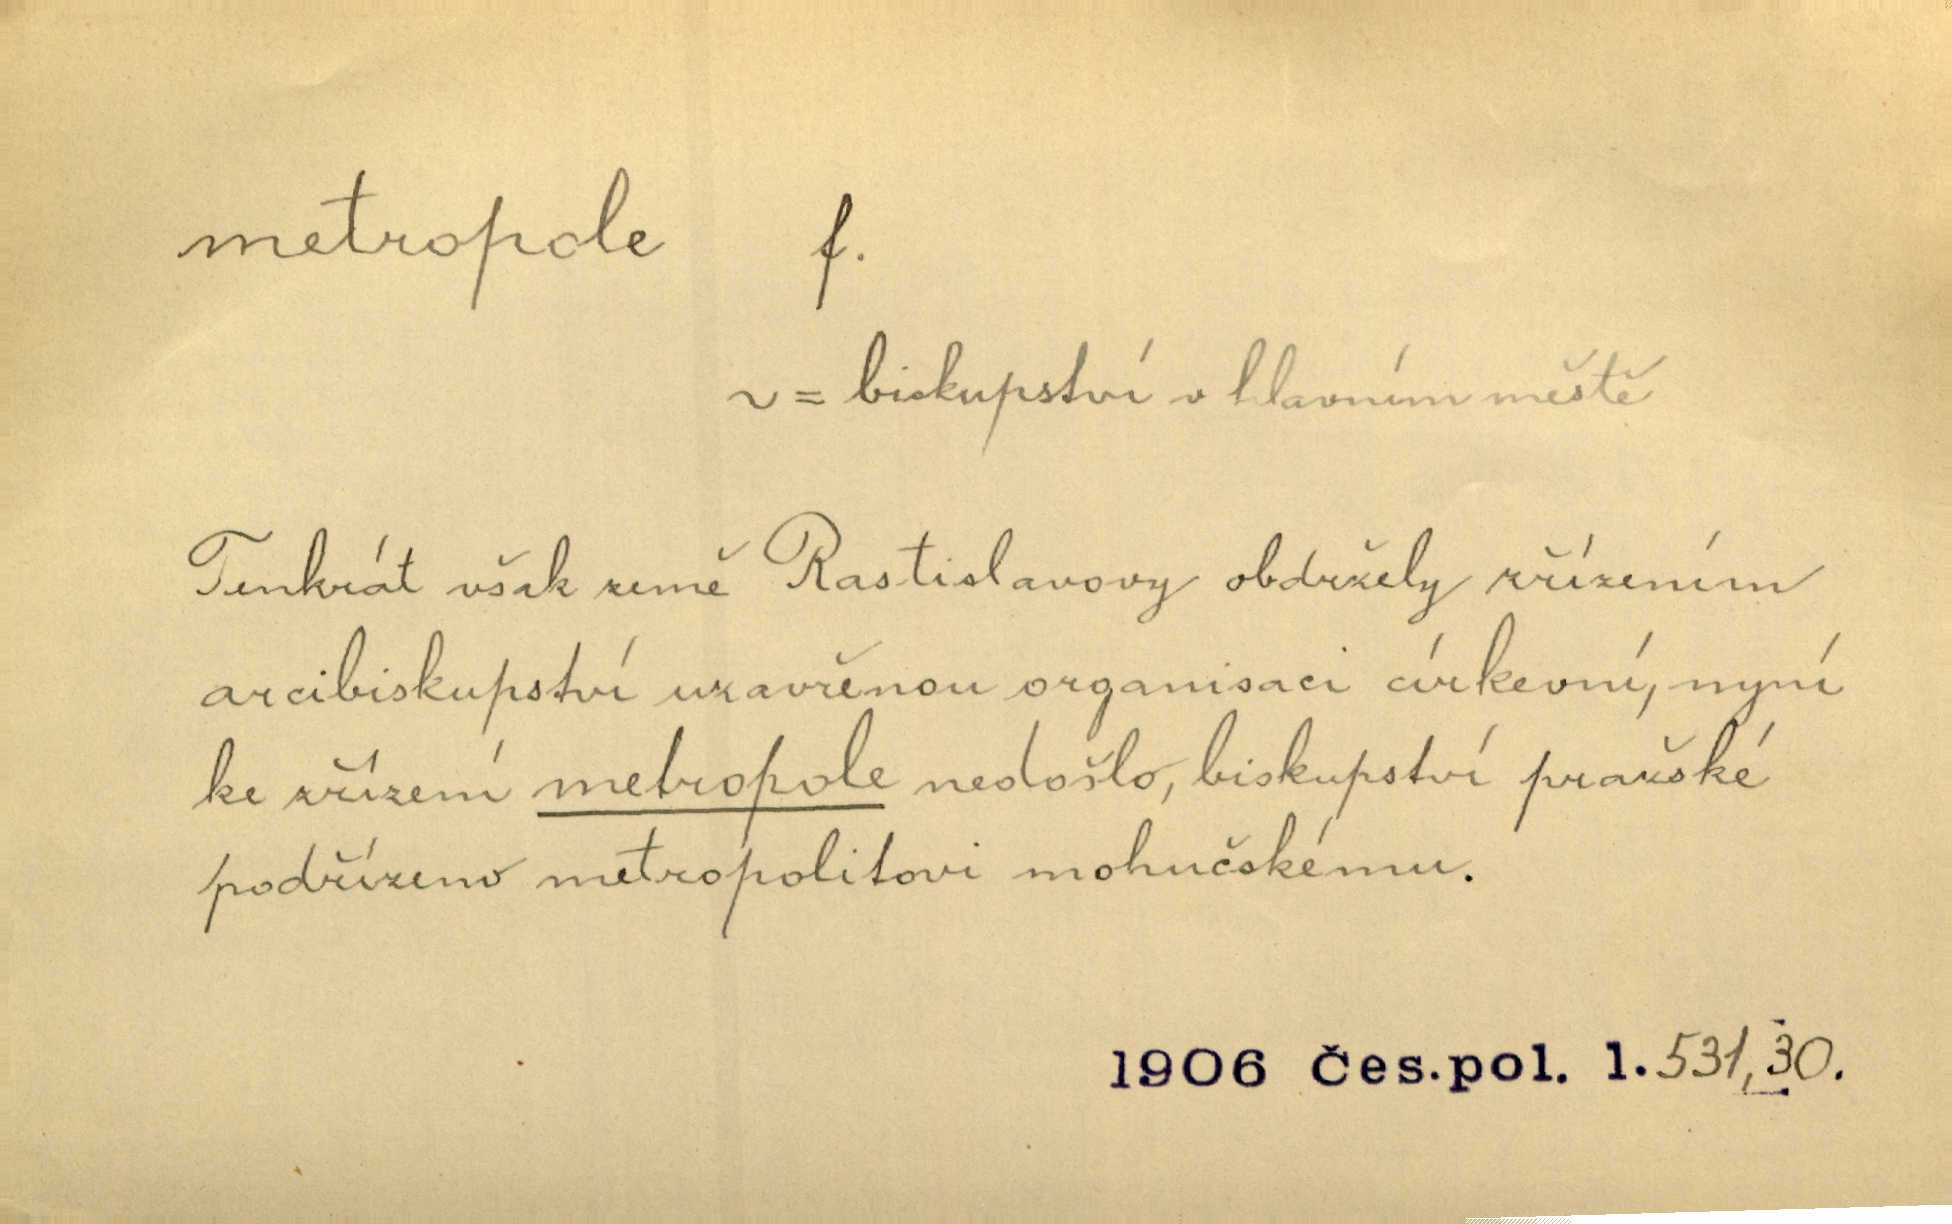 metropole f.
v = biskupství v hlavním městě
Tenkrát však země Rastislavovy obdržely zřízením
arcibiskupství uzavřenou organisaci církevní, nyní
ke zřízení metropole nedošlo, biskupství pražské
podřízeno metropolitovi mohučskému.
1906 Čes.pol. 1.531,30.